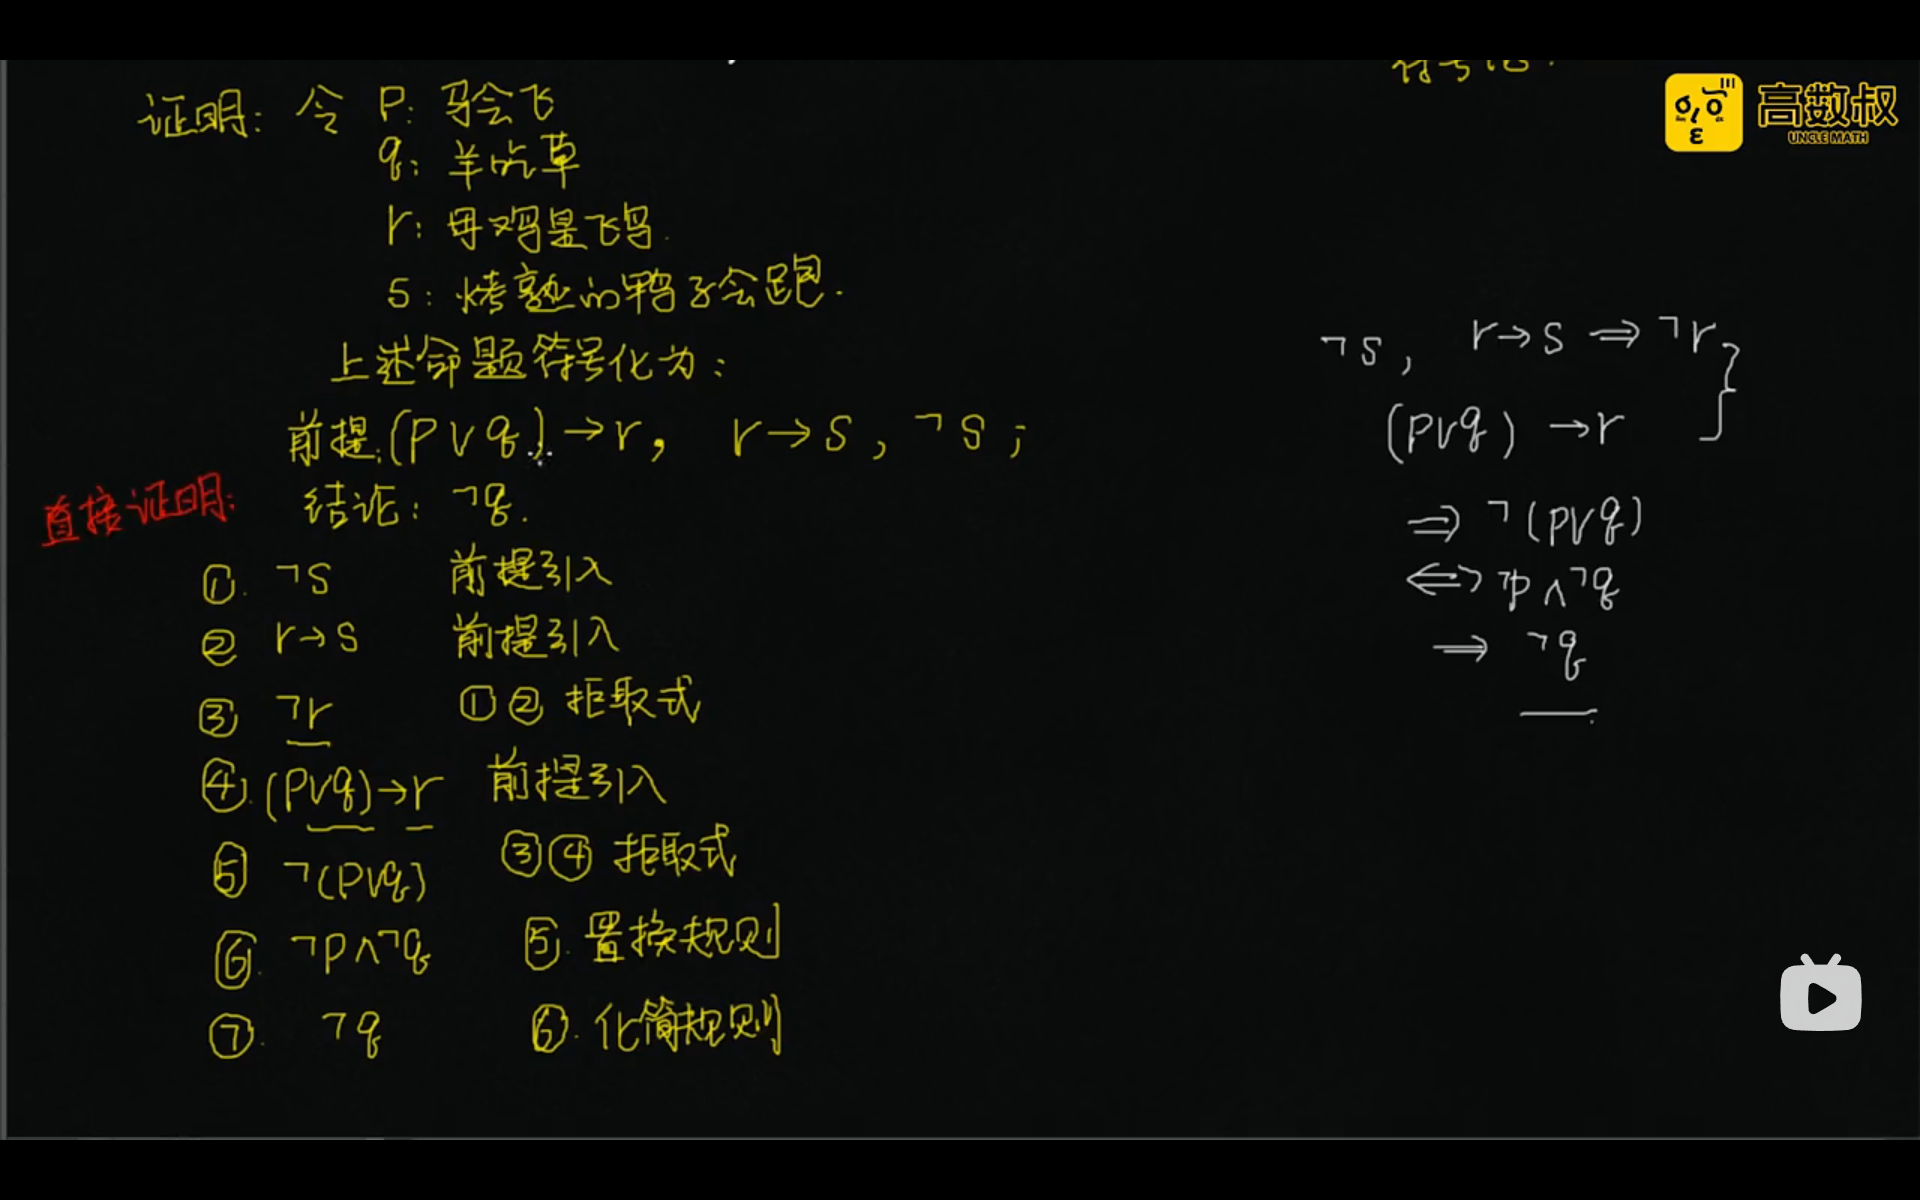 符号化:
高数叔
UNCLE MATH
证明: 令 P: 马会飞
q: 羊吃草
r: 母鸡是飞鸟.
s: 烤熟的鸭子会跑.
上述命题符号化为:
前提:(P∨q)→r, r→s, ¬s;
直接证明: 结论: ¬q.
①. ¬s 前提引入
② r→s 前提引入
③ ¬r ①② 拒取式
④. (P∨q)→r 前提引入
⑤ ¬(P∨q) ③④ 拒取式
⑥. ¬P∧¬q ⑤. 置换规则
⑦. ¬q ⑥. 化简规则
¬s, r→s ⇒ ¬r
(P∨q) →r
⇒ ¬(P∨q)
⇔ ¬P∧¬q
⇒ ¬q